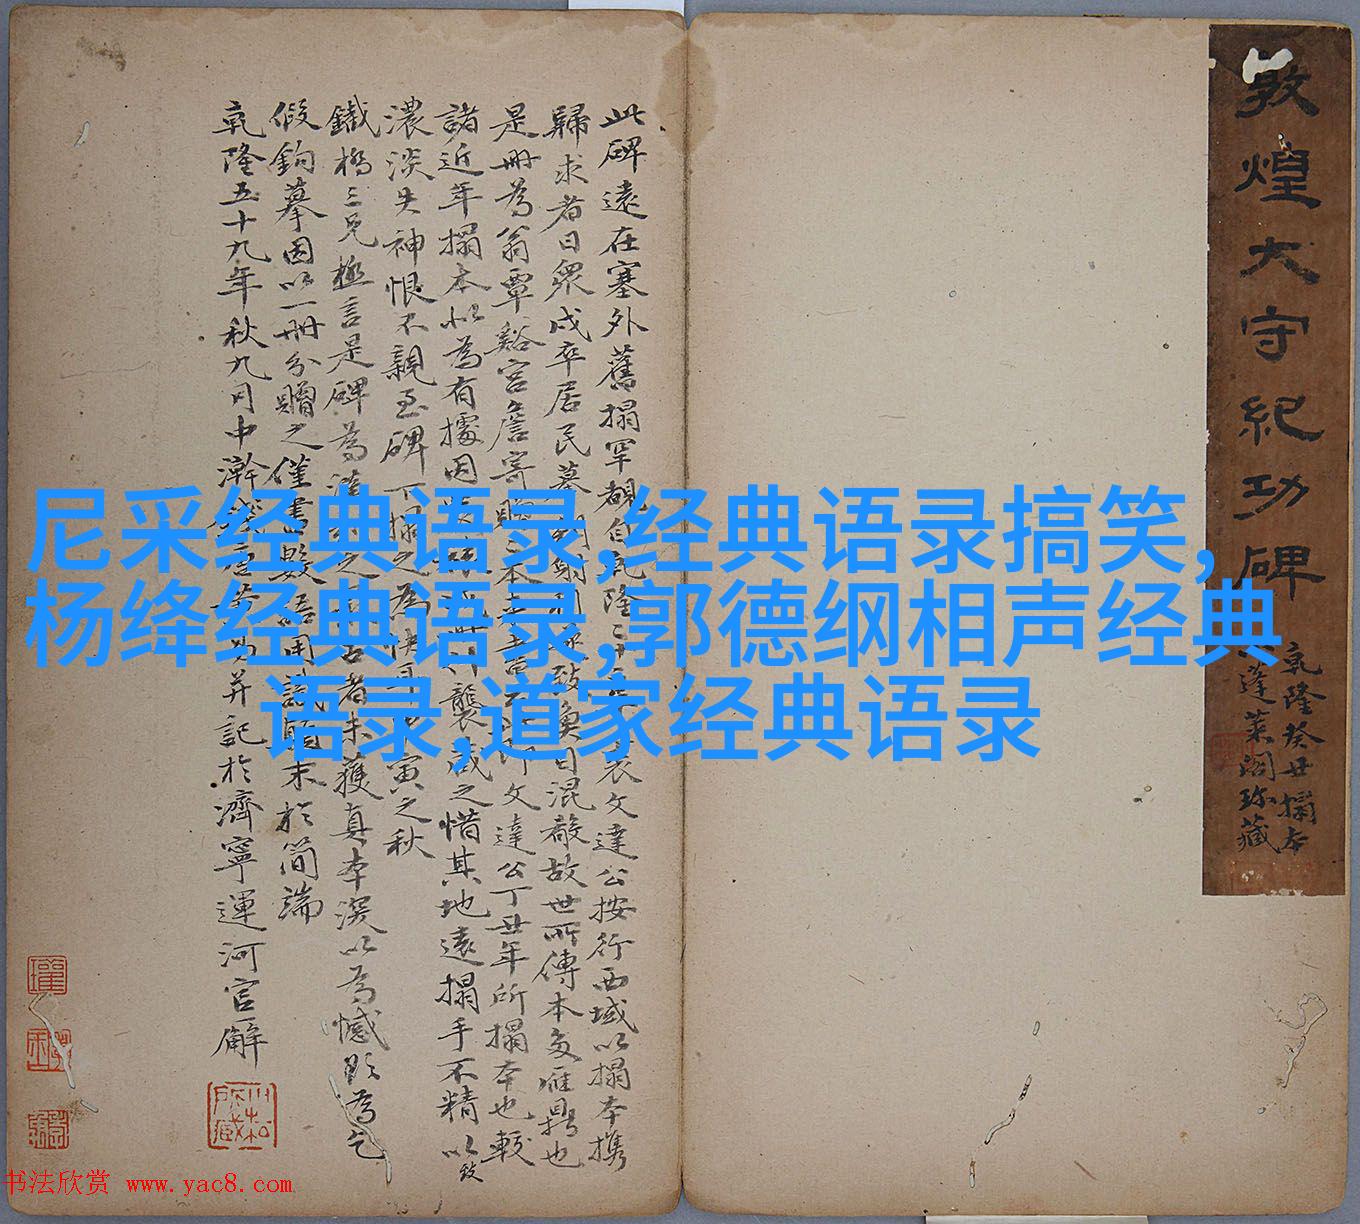 敦煌太守紀功碑
乾隆癸丑搨本
蓬萊閣珎藏
此碑遠在塞外舊搨罕覯自乾隆二十 裘文達公按行西域以搨本携
歸求者日衆戍卒居民 射利 致魚目混殽故世所傳本多雁鼎也
是冊為翁覃谿宮詹寄贈 本 文達公丁丑年所搨本也較
諸近年搨本以為有據因 襲藏之惜其地遠搨手不精以致
濃淡失神恨不親至碑下搨之為快耳 寅之秋
鐵橋三兄極言是碑為漢 之 古者未獲真本深以為憾 為乞
假鈎摹因以一冊分贈之僅書數語用識顛末於簡端
乾隆五十九年秋九月中澣 并記於濟寧運河官廨
尼采经典语录,经典语录搞笑,
杨绛经典语录,郭德纲相声经典
语录,道家经典语录
书法欣赏 www.yac8.com